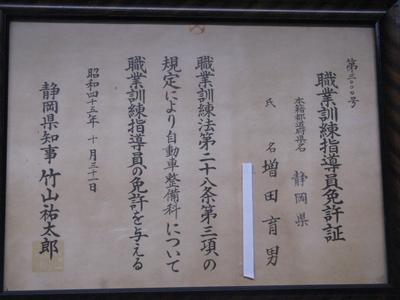 第三〇〇〇号
職業訓練指導員免許証
本籍都道府県名 静岡県
氏名 増田育男
職業訓練法第二十八条第三項の
規定により自動車整備科について
職業訓練指導員の免許を与える
昭和四十五年十月三十一日
静岡県知事 竹山祐太郎